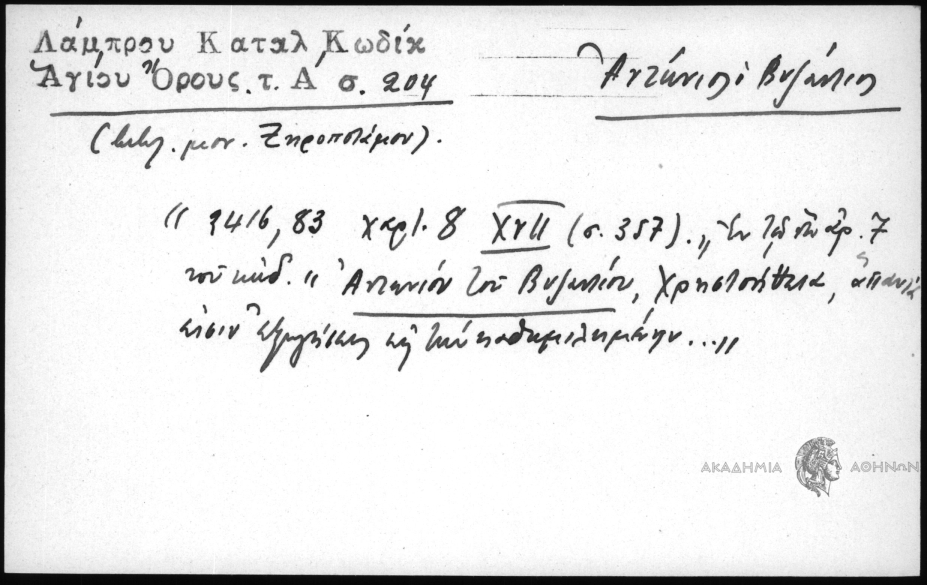 Λάμπρου Καταλ Κωδίκ
Ἁγίου Ὄρους. τ. Α΄ σ. 204
Ἀντώνιος ὁ Βυζάντιος
(βιβλ. μον. Ξηροποτάμου).
" 2416, 83 χαρτ. 8 XVII (σ. 357). " Ἐν τῷ ὑπ' ἀρ. 7
τοῦ κώδ. " Ἀντωνίου τοῦ Βυζαντίου, Χρηστοήθεια,
εἰσιν ἐξηγήσεις εἰς τὴν ... "
ΑΚΑΔΗΜΙΑ ΑΘΗΝΩΝ